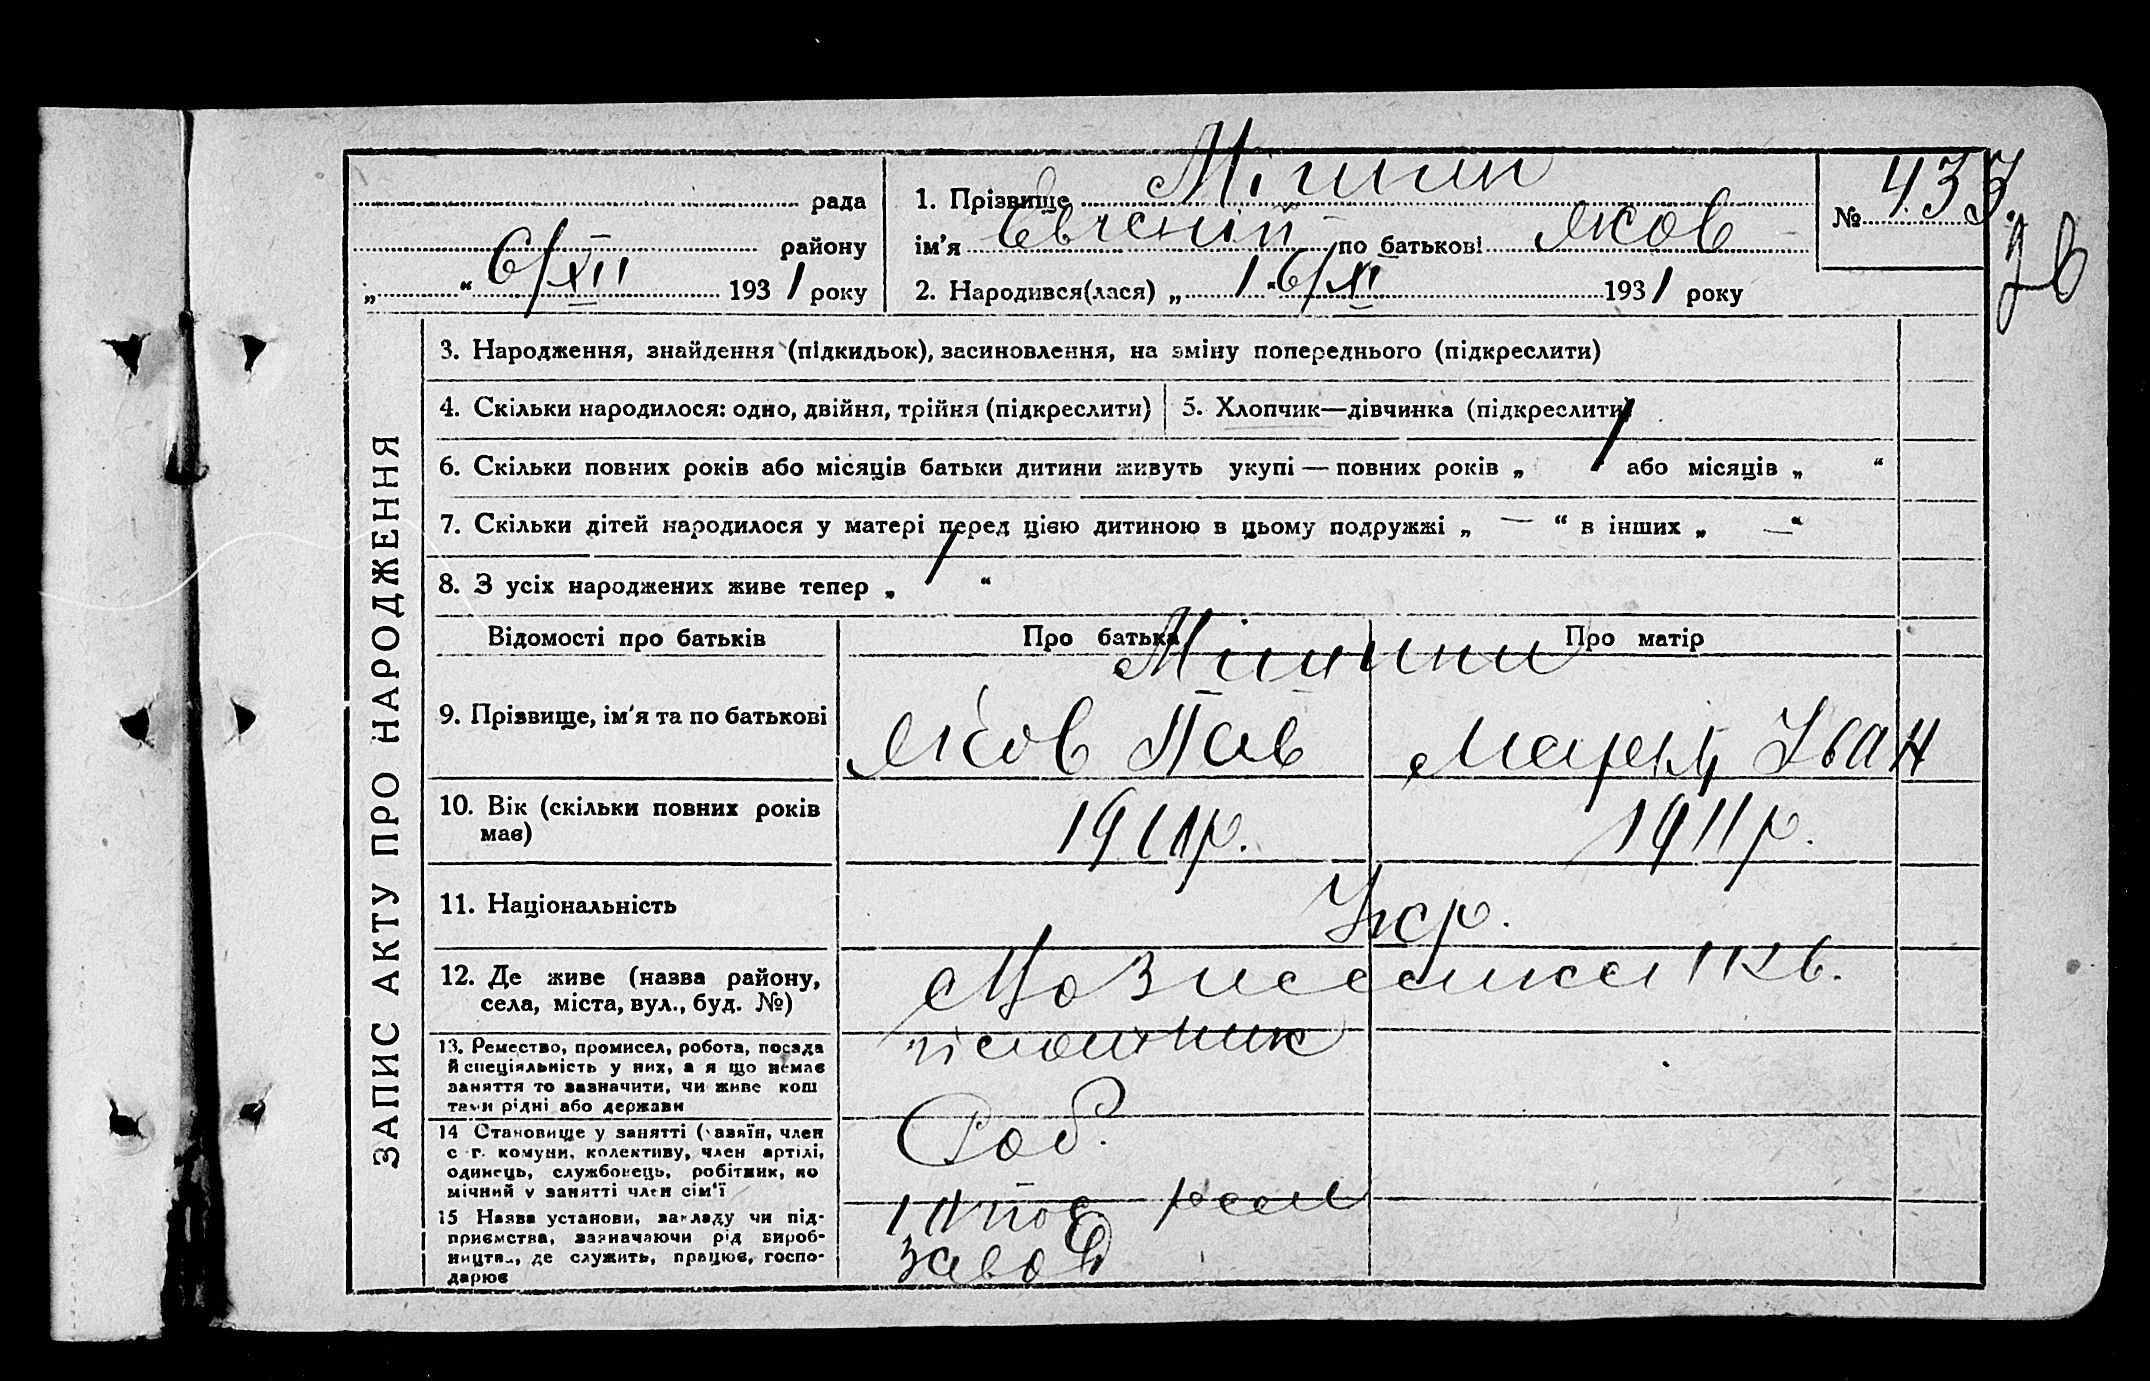 ЗАПИС АКТУ ПРО НАРОДЖЕННЯ
рада
району
„ “ 6/XII 1931 року
1. Прізвище Мішин
ім'я Євгеній по батькові Яков
2. Народився(лася) „ “ 16/XI 1931 року
№ 433
3. Народження, знайдення (підкидьок), засиновлення, на зміну попереднього (підкреслити)
4. Скільки народилося: одно, двійня, трійня (підкреслити)
5. Хлопчик—дівчинка (підкреслити)
6. Скільки повних років або місяців батьки дитини живуть укупі — повних років „ 1 “ або місяців „ “
7. Скільки дітей народилося у матері перед цією дитиною в цьому подружжі „ — “ в інших „ — “
8. З усіх народжених живе тепер „ 1 “
Відомості про батьків
Про батька
Про матір
9. Прізвище, ім'я та по батькові
Мішини
Яков Пав
Иван
10. Вік (скільки повних років
має)
1911р.
1911р.
11. Національність
Укр.
12. Де живе (назва району,
села, міста, вул., буд. №)
13. Ремество, промисел, робота, посада
й спеціяльність у них, а я що немає
заняття то зазначити, чи живе кош
тами рідні або держави
14 Становище у занятті (хазяїн, член
с.-г. комуни, колективу, член артілі,
одинець, службовець, робітник, по
мічний у занятті член сім'ї
Роб.
15 Назва установи, закладу чи під-
приємства, зазначаючи рід вироб-
ництв., де служить, працює, госпо-
дарює
завод